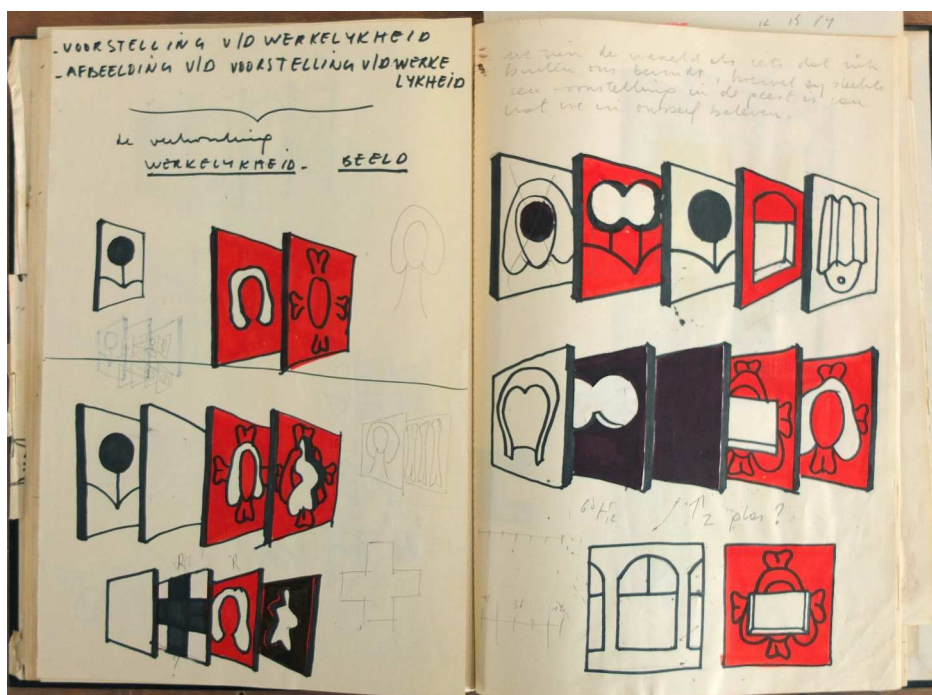 - VOORSTELLING V/D WERKELYKHEID
- AFBEELDING V/D VOORSTELLING V/D WERKE
LYKHEID
de verhouding
WERKELYKHEID - BEELD
12 15 14
= we zien de wereld als iets dat zich
buiten ons bevindt, hoewel zij slechts
een voorstelling in de geest is van
wat we in onszelf beleven.
2 plos?
R? R